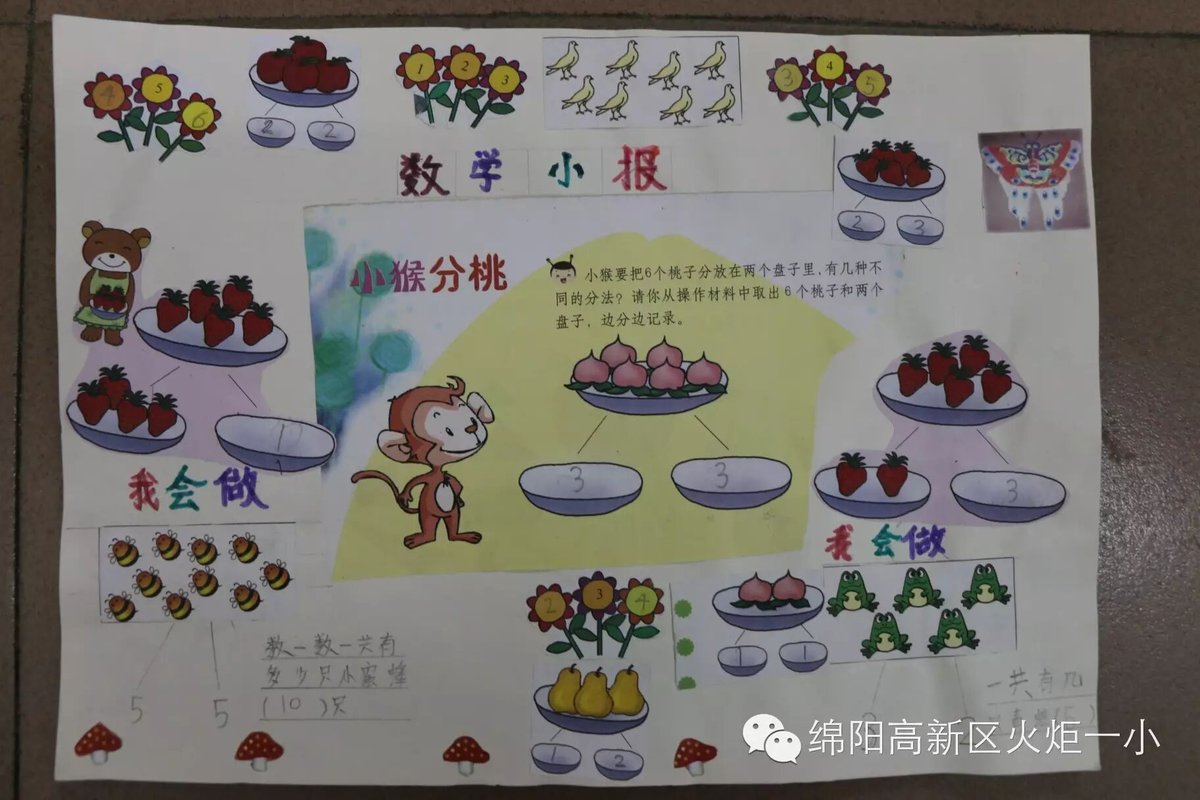 4 5 6
2 2
1 2 3
3 4 5
数学小报
2 3
小猴分桃
小猴要把6个桃子分放在两个盘子里,有几种不
同的分法?请你从操作材料中取出6个桃子和两个
盘子,边分边记录。
1
3 3
3
我会做
我会做
5 5
数一数一共有
多少只小蜜蜂
(10)只
2 3 4
1 1
1 2
一共有几
2
绵阳高新区火炬一小